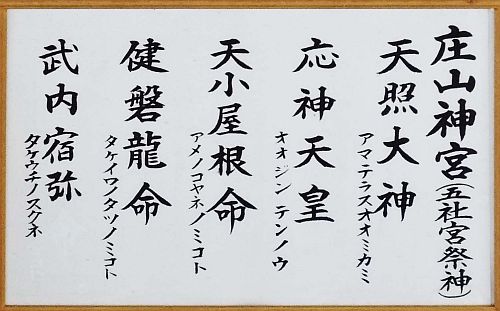 庄山神宮(五社宮祭神)
天照大神
アマテラスオオミカミ
応神天皇
オオジンテンノウ
天小屋根命
アメノコヤネノミコト
健磐龍命
タケイワノタツノミコト
武内宿弥
タケウチノスクネ